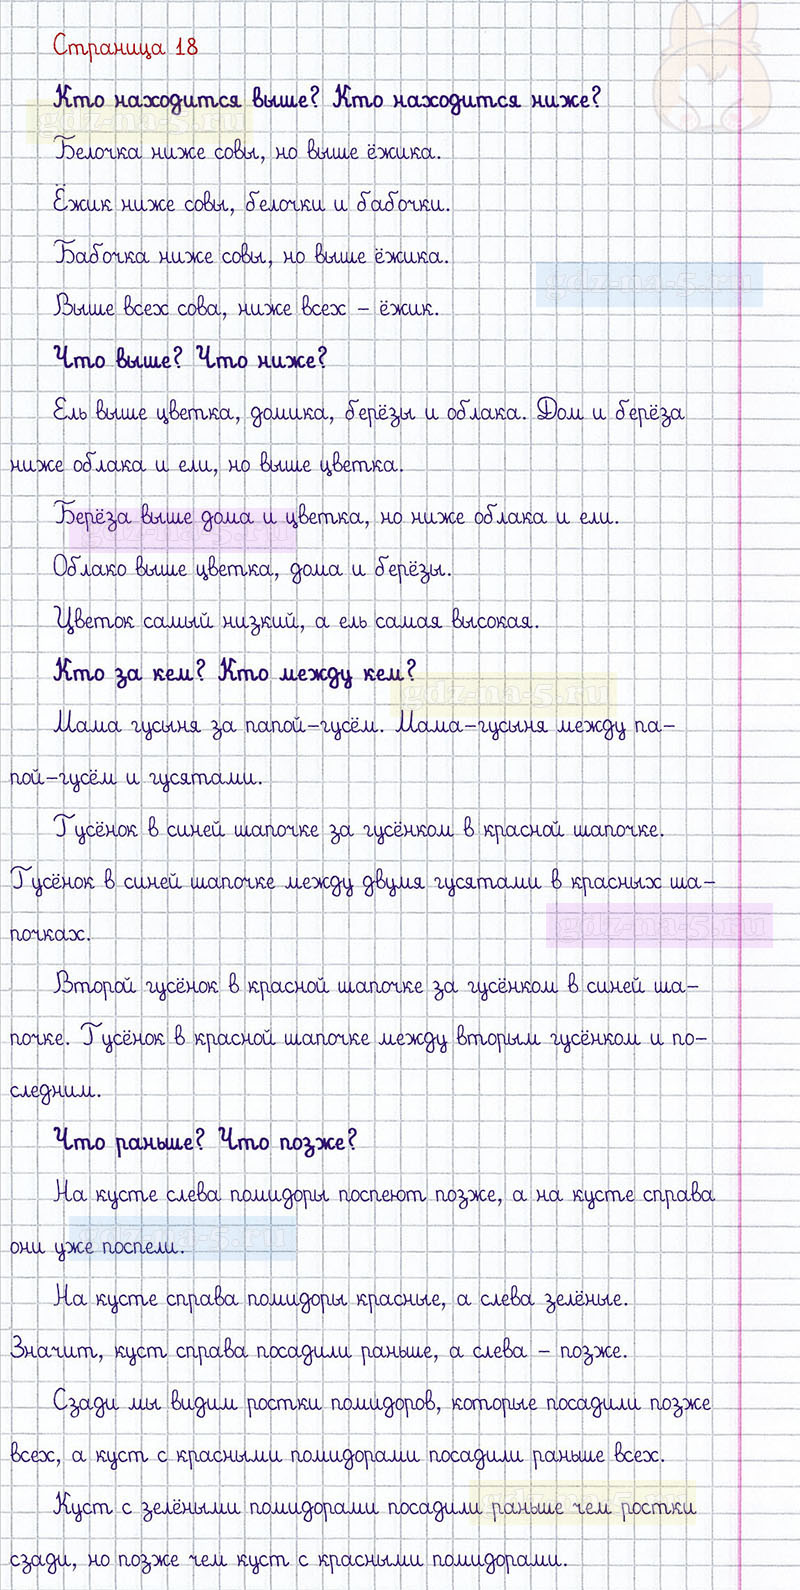 Страница 18
Кто находится выше? Кто находится ниже?
gdz-na-5.ru
Белочка ниже совы, но выше ёжика.
Ёжик ниже совы, белочки и бабочки.
Бабочка ниже совы, но выше ёжика.
gdz-na-5.ru
Выше всех сова, ниже всех – ёжик.
Что выше? Что ниже?
Ель выше цветка, домика, берёзы и облака. Дом и берёза
ниже облака и ели, но выше цветка.
Берёза выше дома и цветка, но ниже облака и ели.
gdz-na-5.ru
Облако выше цветка, дома и берёзы.
Цветок самый низкий, а ель самая высокая.
Кто за кем? Кто между кем?
gdz-na-5.ru
Мама гусыня за папой-гусём. Мама-гусыня между па-
пой-гусём и гусятами.
Гусёнок в синей шапочке за гусёнком в красной шапочке.
Гусёнок в синей шапочке между двумя гусятами в красных ша-
почках.
gdz-na-5.ru
Второй гусёнок в красной шапочке за гусёнком в синей ша-
почке. Гусёнок в красной шапочке между вторым гусёнком и по-
следним.
Что раньше? Что позже?
На кусте слева помидоры поспеют позже, а на кусте справа
они уже поспели.
gdz-na-5.ru
На кусте справа помидоры красные, а слева зелёные.
Значит, куст справа посадили раньше, а слева – позже.
Сзади мы видим ростки помидоров, которые посадили позже
всех, а куст с красными помидорами посадили раньше всех.
Куст с зелёными помидорами посадили раньше чем ростки
gdz-na-5.ru
сзади, но позже чем куст с красными помидорами.